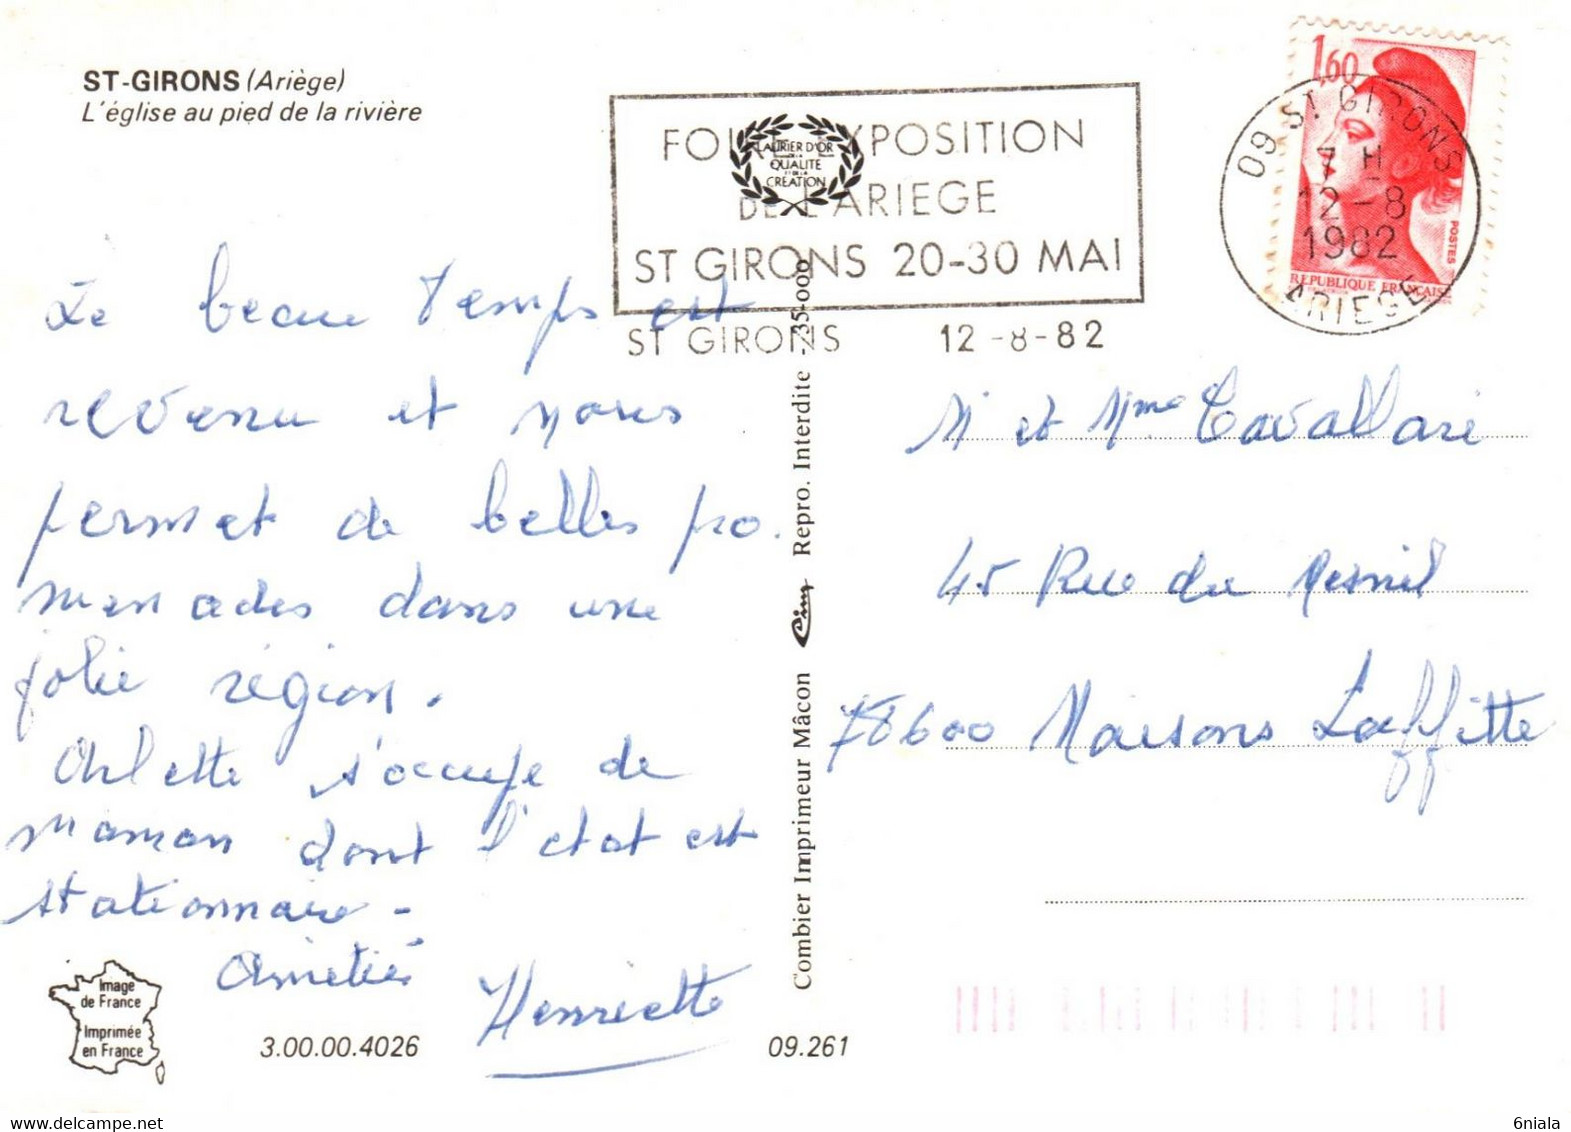 ST-GIRONS (Ariège)
L'église au pied de la rivière
FOIRE EXPOSITION
DE L'ARIEGE
ST GIRONS 20-30 MAI
ST GIRONS 12-8-82
LAURIER D'OR
DE LA
QUALITE
ET DE LA
CREATION
1,60
POSTES
REPUBLIQUE FRANÇAISE
09 ST GIRONS
7 H
12-8
1982
ARIEGE
Le beau temps est
revenu et nous
permet de belles pro.
menades dans une
jolie région.
Arlette s'occupe de
maman dont l'état est
stationnaire -
Amitiés
Henriette
M et Mme Cavallari
45 Rue du Mesnil
78600 Maisons Laffitte
Combier Imprimeur Mâcon Cim Repro. Interdite - 235-000
Image
de France
Imprimée
en France
3.00.00.4026
09.261
delcampe.net
6niala